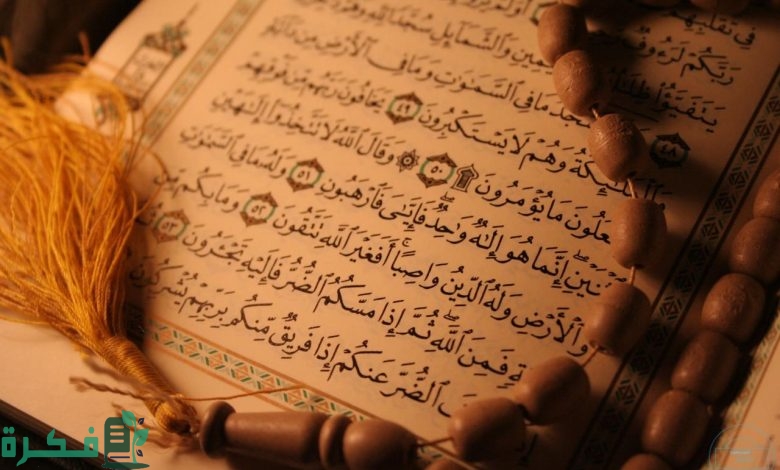 فِى تَقَلُّبِهِمْ
رَبَّكُمْ لَرَءُوفٌ أَوَلَمْ
يَتَفَيَّؤُا۟ ظِلَٰلُهُۥ وَٱلشَّمَآئِلِ سُجَّدًا لِّلَّهِ وَهُمْ
٤٨ مَا فِى ٱلسَّمَٰوَٰتِ وَمَا فِى ٱلْأَرْضِ مِن دَآبَّةٍ
وَٱلْمَلَٰٓئِكَةُ وَهُمْ لَا يَسْتَكْبِرُونَ ٤٩ يَخَافُونَ رَبَّهُم مِّن فَوْقِهِمْ
عَلُونَ مَا يُؤْمَرُونَ ۩ ٥٠ ۞ وَقَالَ ٱللَّهُ لَا تَتَّخِذُوٓا۟ إِلَٰهَيْنِ
ثْنَيْنِ إِنَّمَا هُوَ إِلَٰهٌ وَٰحِدٌ فَإِيَّٰىَ فَٱرْهَبُونِ ٥١ وَلَهُۥ مَا فِى ٱلسَّمَٰوَٰتِ
وَٱلْأَرْضِ وَلَهُ ٱلدِّينُ وَاصِبًا أَفَغَيْرَ ٱللَّهِ تَتَّقُونَ ٥٢ وَمَا بِكُم مِّن
ةٍ فَمِنَ ٱللَّهِ ثُمَّ إِذَا مَسَّكُمُ ٱلضُّرُّ فَإِلَيْهِ تَجْـَٔرُونَ ٥٣
فَ ٱلضُّرَّ عَنكُمْ إِذَا فَرِيقٌ مِّنكُم بِرَبِّهِمْ يُشْرِكُونَ
فكرة